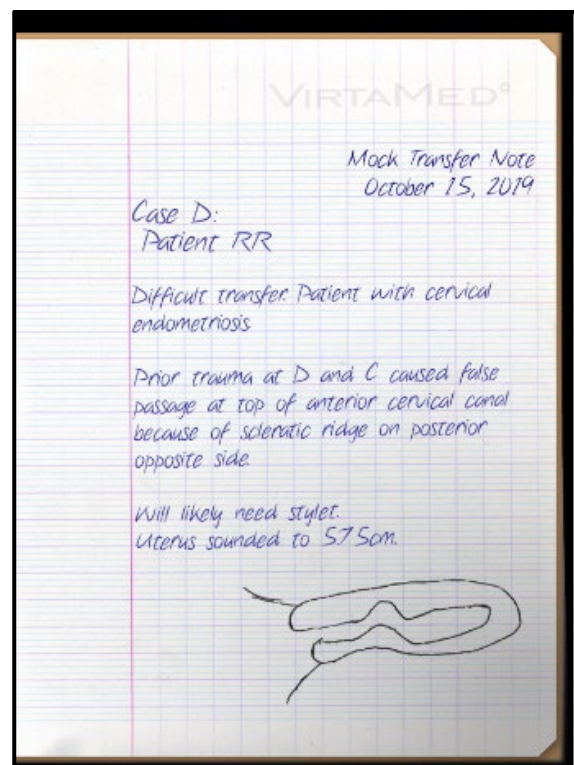 VIRTAMED°
Mock Transfer Note
October 15, 2019
Case D:
Patient RR
Difficult transfer. Patient with cervical
endometriosis
Prior trauma at D and C caused false
passage at top of anterior cervical canal
because of scleratic ridge on posterior
opposite side.
Will likely need stylet.
Uterus sounded to 5.75cm.